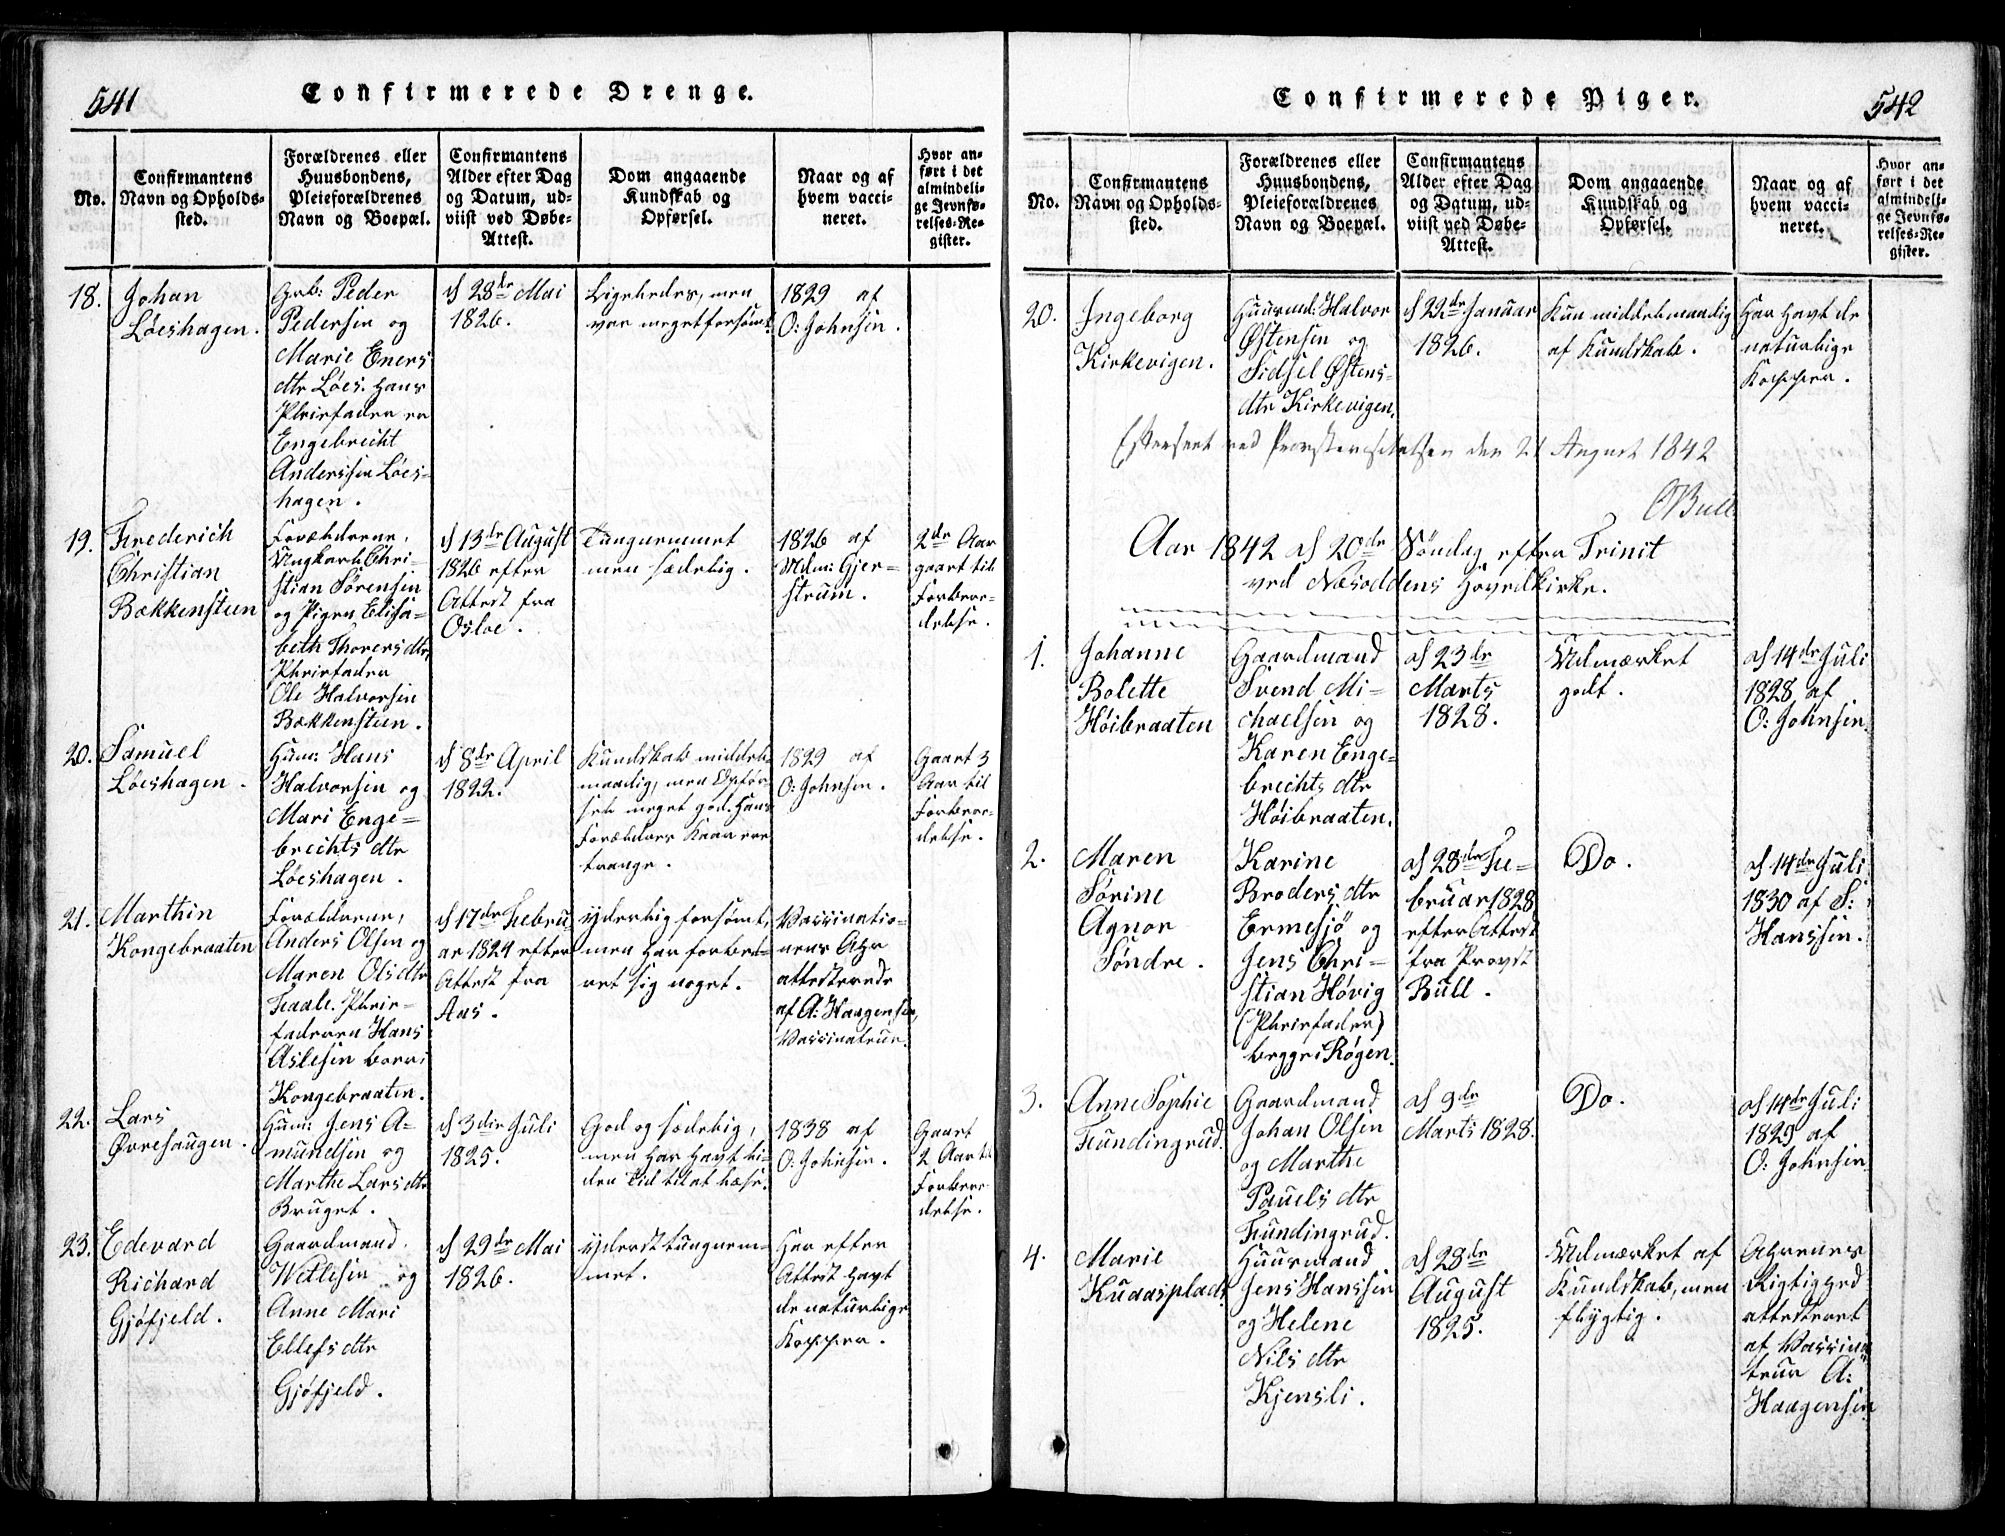 541
Confirmerede Drenge.
No.
Confirmantens
Navn og Opholds-
sted.
Forældrenes eller
Huusbondens,
Pleieforældrenes
Navn og Boepæl.
Confirmantens
Alder efter Dag
og Datum, ud-
viist ved Døbe-
Attest.
Dom angaaende
Kundskab og
Opførsel.
Naar og af
hvem vacci-
neret.
Hvor an-
ført i det
almindeli-
ge Jevnfø-
relses-Re-
gister.
18.
Johan
Løeshagen.
Grb: Peder
Pedersen og
Marie Eners
dtr Løes. Hans
Pleiefader er
Engebrecht
Anderssen Løes-
hagen.
d 28de Mai
1826.
Ligeledes, men
var meget forsømt.
1829 af
O: Johnsen.
19.
Frederich
Christian
Bækkensteen
Forældrene,
Ungkarl Chri-
stian Sørensen
og Pigen Elisa-
beth Thorersdtr,
Pleiefader
Ole Halvorsen
Bækkensteen.
d 13de August
1826 efter
Attest fra
Osloe.
Tungnemmet
men sædelig.
1826 af
Mdm: Gjer-
strum.
2de Aar
gaaet til
Forbere-
delse.
20.
Samuel
Løeshagen.
Hum: Hans
Halvorsen og
Mari Enge-
brechts dtr
Løeshagen.
d 8de April
1822.
Kundskab middel-
maadig, men Opfør-
sel meget god. Hans
Forældres Kaar ere
trange.
1829 af
O: Johnsen.
Gaaet 3
Aar til
Forbere-
delse.
21.
Marthin
Kongebraaten
Forældrene,
Anders Olsen og
Maren Olsdtr
Fraale. Pleie-
faderen Hans
Aslesen boer i
Kongebraaten.
d 17de Febru-
ar 1824 efter
Attest fra
Aas.
yderlig forsømt,
men har forbed-
ret sig noget.
Vaccinatio-
nens Ægt
attesterede
af A: Haagensen,
Vaccinateur.
22.
Lars
Øvrehaugen.
Hum: Jens A-
mundsen og
Marthe Larsdtr
Bruget.
d 3die Juli
1825.
God og sædelig,
men har havt li-
den Tid til at læse.
1838 af
O: Johnsen.
Gaaet
2 Aar til
Forbere-
delse.
23.
Edevard
Richard
Gjøfjeld.
Gaardmand
Wetlesen og
Anne Mari
Ellefs dtr
Gjøfjeld.
d 29de Mai
1826.
yderst tungnem-
met.
Har efter
Attest havt
de naturlige
Kopper.
542
Confirmerede Piger.
No.
Confirmantens
Navn og Opholds-
sted.
Forældrenes eller
Huusbondens,
Pleieforældrenes
Navn og Boepæl.
Confirmantens
Alder efter Dag
og Datum, ud-
viist ved Døbe-
Attest.
Dom angaaende
Kundskab og
Opførsel.
Naar og af
hvem vacci-
neret.
Hvor an-
ført i det
almindeli-
ge Jevnfø-
relses-Re-
gister.
20.
Ingeborg
Kirkevigen.
Huusmd: Halvor
Østensen og
Sidsel Østens-
dtr Kirkevigen.
d 22de Januar
1826.
Kun middelmaadig
af Kundskab.
Har havt de
naturlige
Kopper.
Efterseet ved Provstevisitatsen den 21 August 1842
Bull
Aar 1842 d 20de Søndag efter Trinit
ved Næsoddens Hovedkirke.
1.
Johanne
Bolette
Høibraaten
Gaardmand
Svend Mi-
chaelsen og
Karen Enge-
brechts dtr
Høibraaten.
d 23de
Marts
1828.
Udmærket
godt.
d 14de Juli
1828 af
O: Johnsen.
2.
Maren
Sørine
Agnor
Søndre.
Karine
Broders dtr
Ermesjö og
Jens Chri-
stian Høvig
(Pleiefader)
begge i Røgen.
d 28de Fe-
bruar 1828
efter Attest
fra Provst
Bull.
Do.
d 14de Juli
1830 af S:
Hanssen.
3.
Anne Sophie
Fundingrud.
Gaardmand
Johan Olsen
og Marthe
Pauels dtr
Fundingrud.
d 9de
Marts 1828.
Do.
d 14de Juli
1829 af
O: Johnsen
4.
Marie
Kuaasplads
Huusmand
Jens Hanssen
og Helene
Nils dtr
Kjensli.
d 28de
August
1825.
Udmærket af
Kundskab, men
flygtig.
Rigtighed
attesteret
af Vaccina-
teur A:
Haagensen